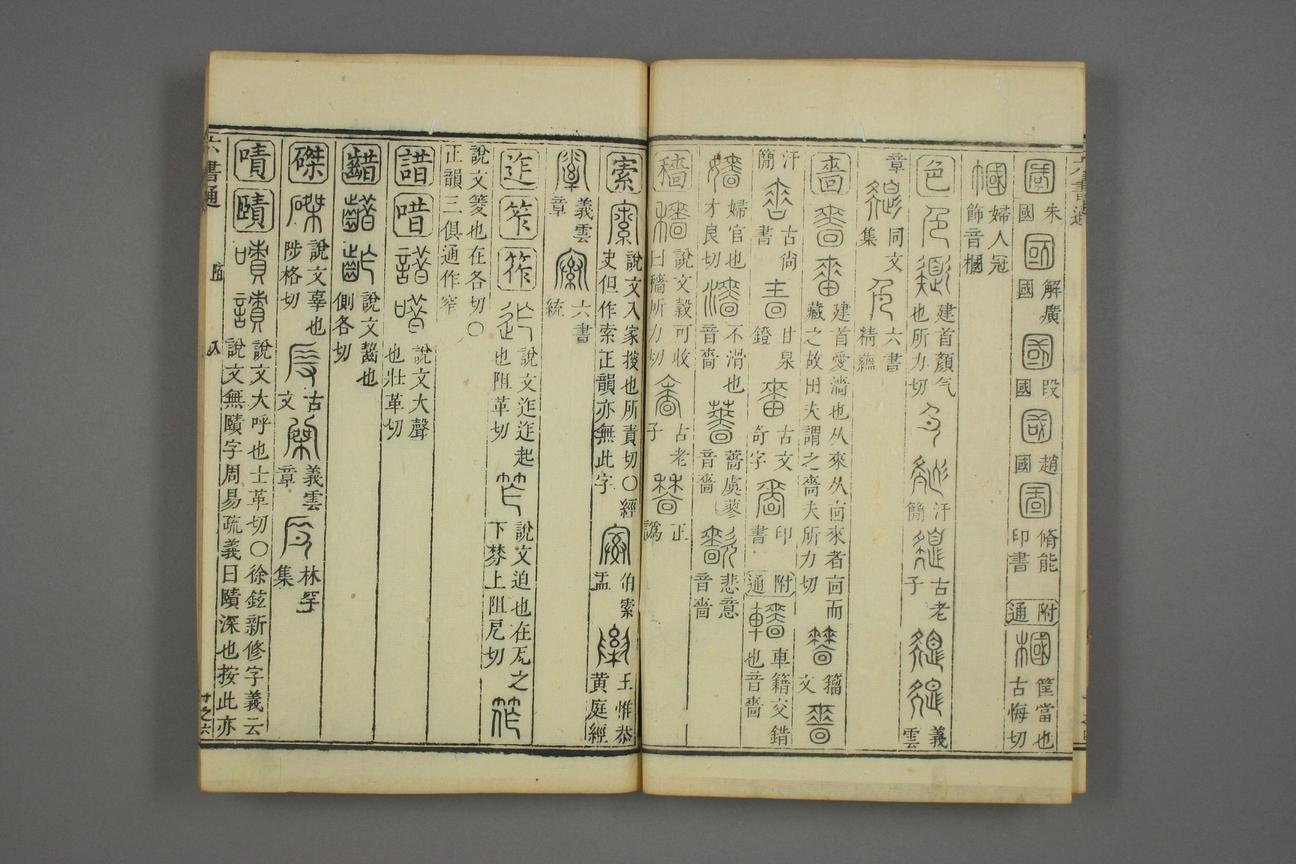 國 朱國 國 解廣國 國 段國 國 趙國 國 脩能印書 附通 槶 筐當也古悔切
幗 婦人冠飾音槶
色 色 建首顏气也所力切 汗簡 古老子 義雲
章 同文集 色 六書精蘊
嗇 嗇 嗇 建首愛濇也从來从㐭來者㐭而藏之故田夫謂之嗇夫所力切 籀文
汗簡 古尚書 甘泉鐙 古文奇字 印書 附通 轖 車籍交錯也音嗇
嬙 婦官也才良切 濇 不滑也音嗇 薔 薔虞蓼音嗇 悲意音嗇
穡 穡 說文穀可收曰穡所力切 古老子 正譌
㮦 說文入家搜也所責切〇經史但作索正韻亦無此字 伯索盂 王惟恭黃庭經
義雲章 六書統
迮 笮 筰 迮 說文迮迮起也阻革切 笮 說文迫也在瓦之下棼上阻厄切 筰
說文筊也在各切〇正韻三俱通作窄
諎 唶 諎 唶 說文大聲也壯革切
齰 齰 齚 說文齧也側各切
磔 磔 說文辜也陟格切 古文 義雲章 林罕集
嘖 賾 嘖 說文大呼也士革切〇徐鉉新修字義云說文無賾字周易疏義曰賾深也按此亦
六書通